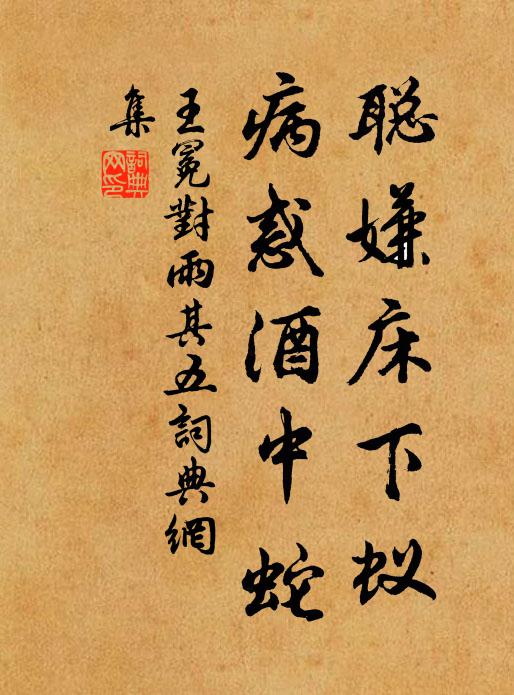 聪嫌床下蚁
病惑酒中蛇
王冕對雨其五詞典網
集
詞典
网印